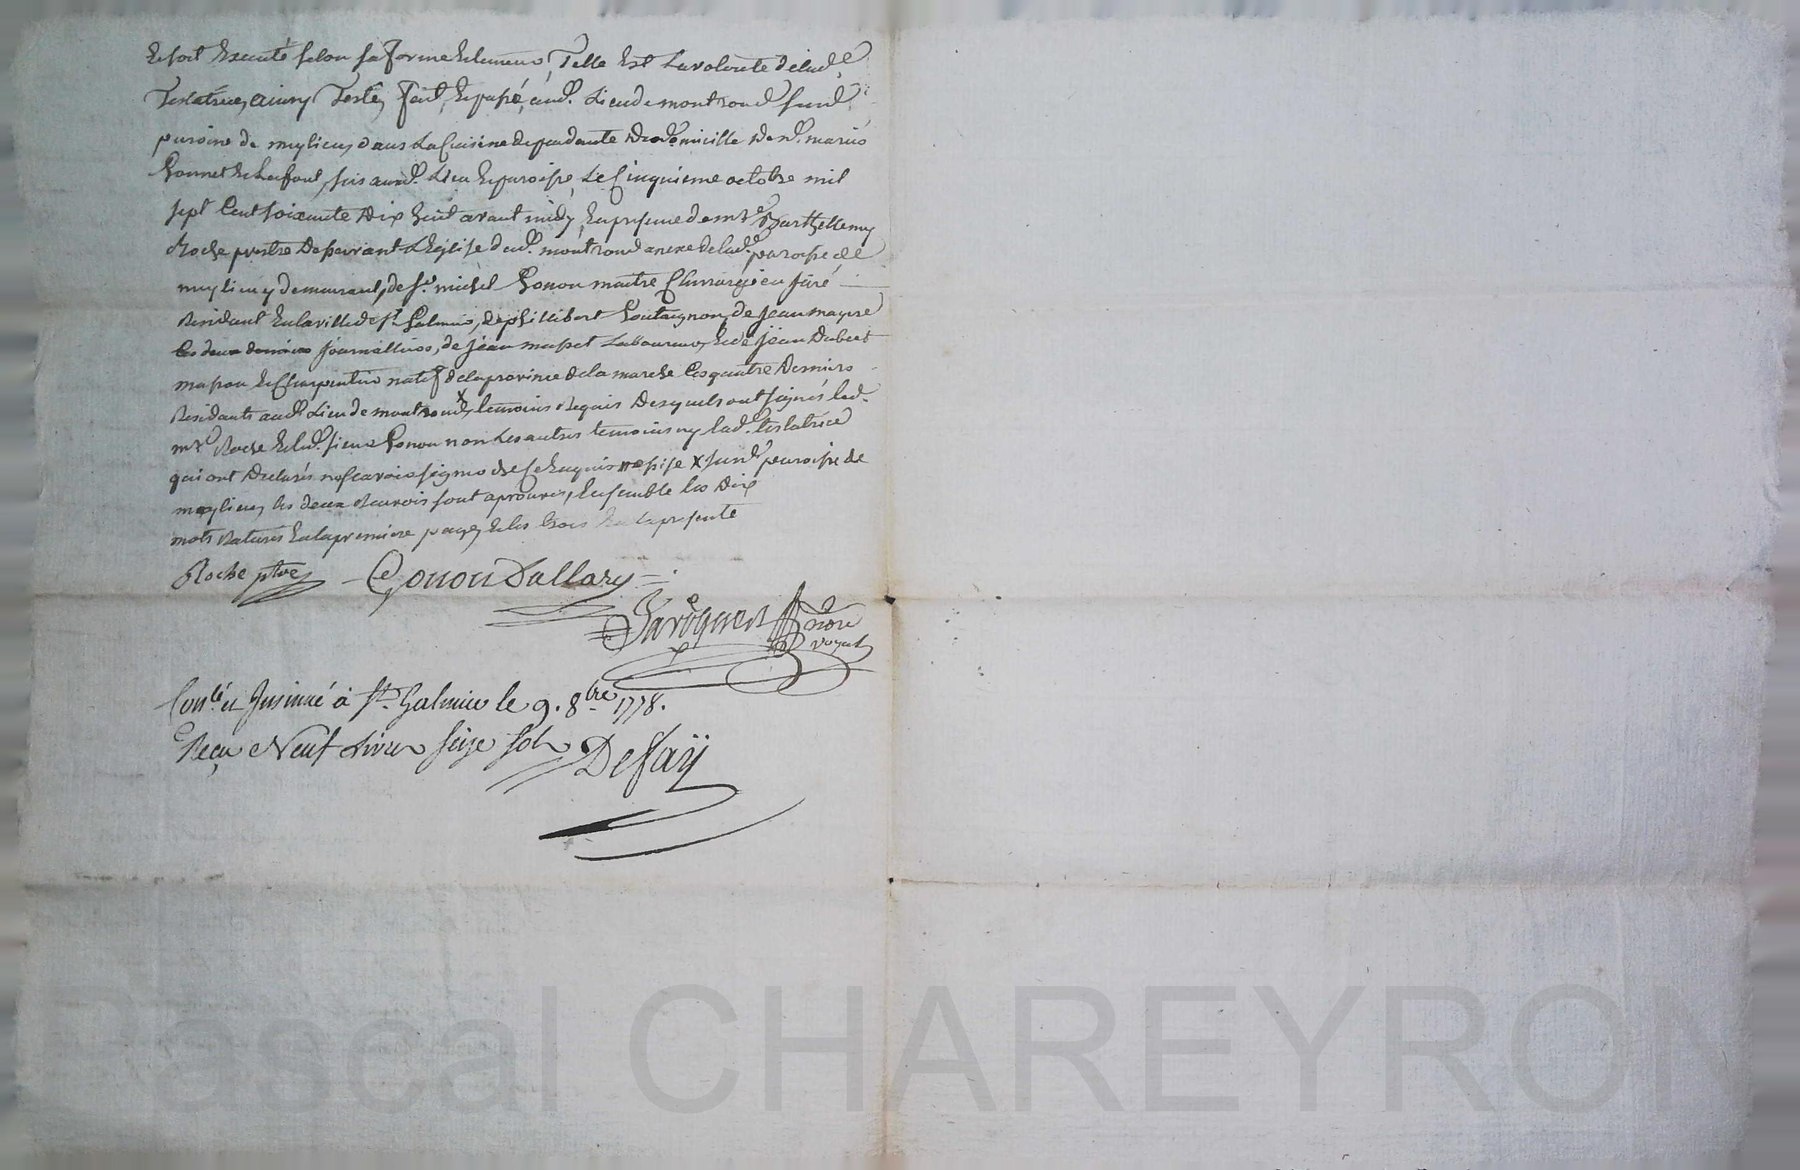 et soit Executé selon sa forme et teneur, Telle Est La volonté de lad.e
Testatrice, ainsy Testé, fait, et passé, aud. Lieu de montrond susd.
paroisse de meylieu, dans La Cuisine dependante du domicille de s.r
et Lafont, sis aud. Lieu et paroisse, Le Cinquieme octobre mil
sept Cent soixante Dix huit avant midy, En presence de m.re Barthellemy
Roche prestre Desservant L'Eglise dud. montrond anexe de lad. paroisse de
meylieu y demeurant, de s.r michel Gonon maitre Chirurgien juré
Residant En la ville de s.t Galmier, de phillibert de jean
Les deux derniers journalliers, de jean masset Laboureur, et de jean Dubert
masson et Charpentier natif de la province de la marche Les quatre Derniers
Residants aud. Lieu de montrond, x temoins Requis Desquels ont signés led.
m.re Roche et led. sieur Gonon non Les autres temoins ny lad. testatrice
qui ont Declarés ne scavoir signer de ce Enquis x susd. paroisse de
meylieu, les deux Renvois sont aprouvés, Ensemble les Dix
mots Raturés En la premiere page, et les trois En la presente
Roche ptre Gonon Dallary
Con.lé et Insinué à S.t Galmier le 9. 8.bre 1778.
Reçu Neuf Livres seize sols Defaÿ
Pascal CHAREYRON